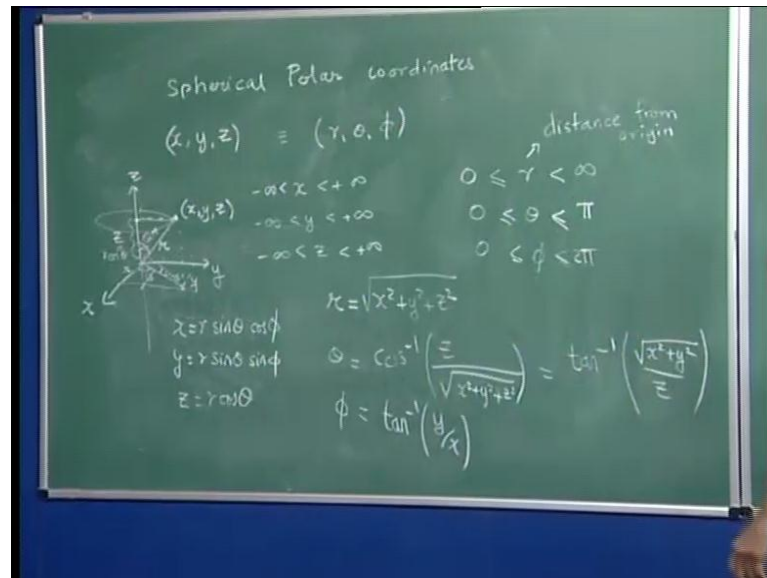 Spherical Polar coordinates
(x, y, z) ≡ (r, θ, ϕ)
distance from
origin
-∞ < x < +∞
-∞ < y < +∞
-∞ < z < +∞
0 ≤ r < ∞
0 ≤ θ ≤ π
0 ≤ ϕ < 2π
z
(x,y,z)
z
r
r cosθ
y
x
x = r sinθ cosϕ
y = r sinθ sinϕ
z = r cosθ
r = √(x²+y²+z²)
θ = cos⁻¹(z/√(x²+y²+z²)) = tan⁻¹(√(x²+y²)/z)
ϕ = tan⁻¹(y/x)